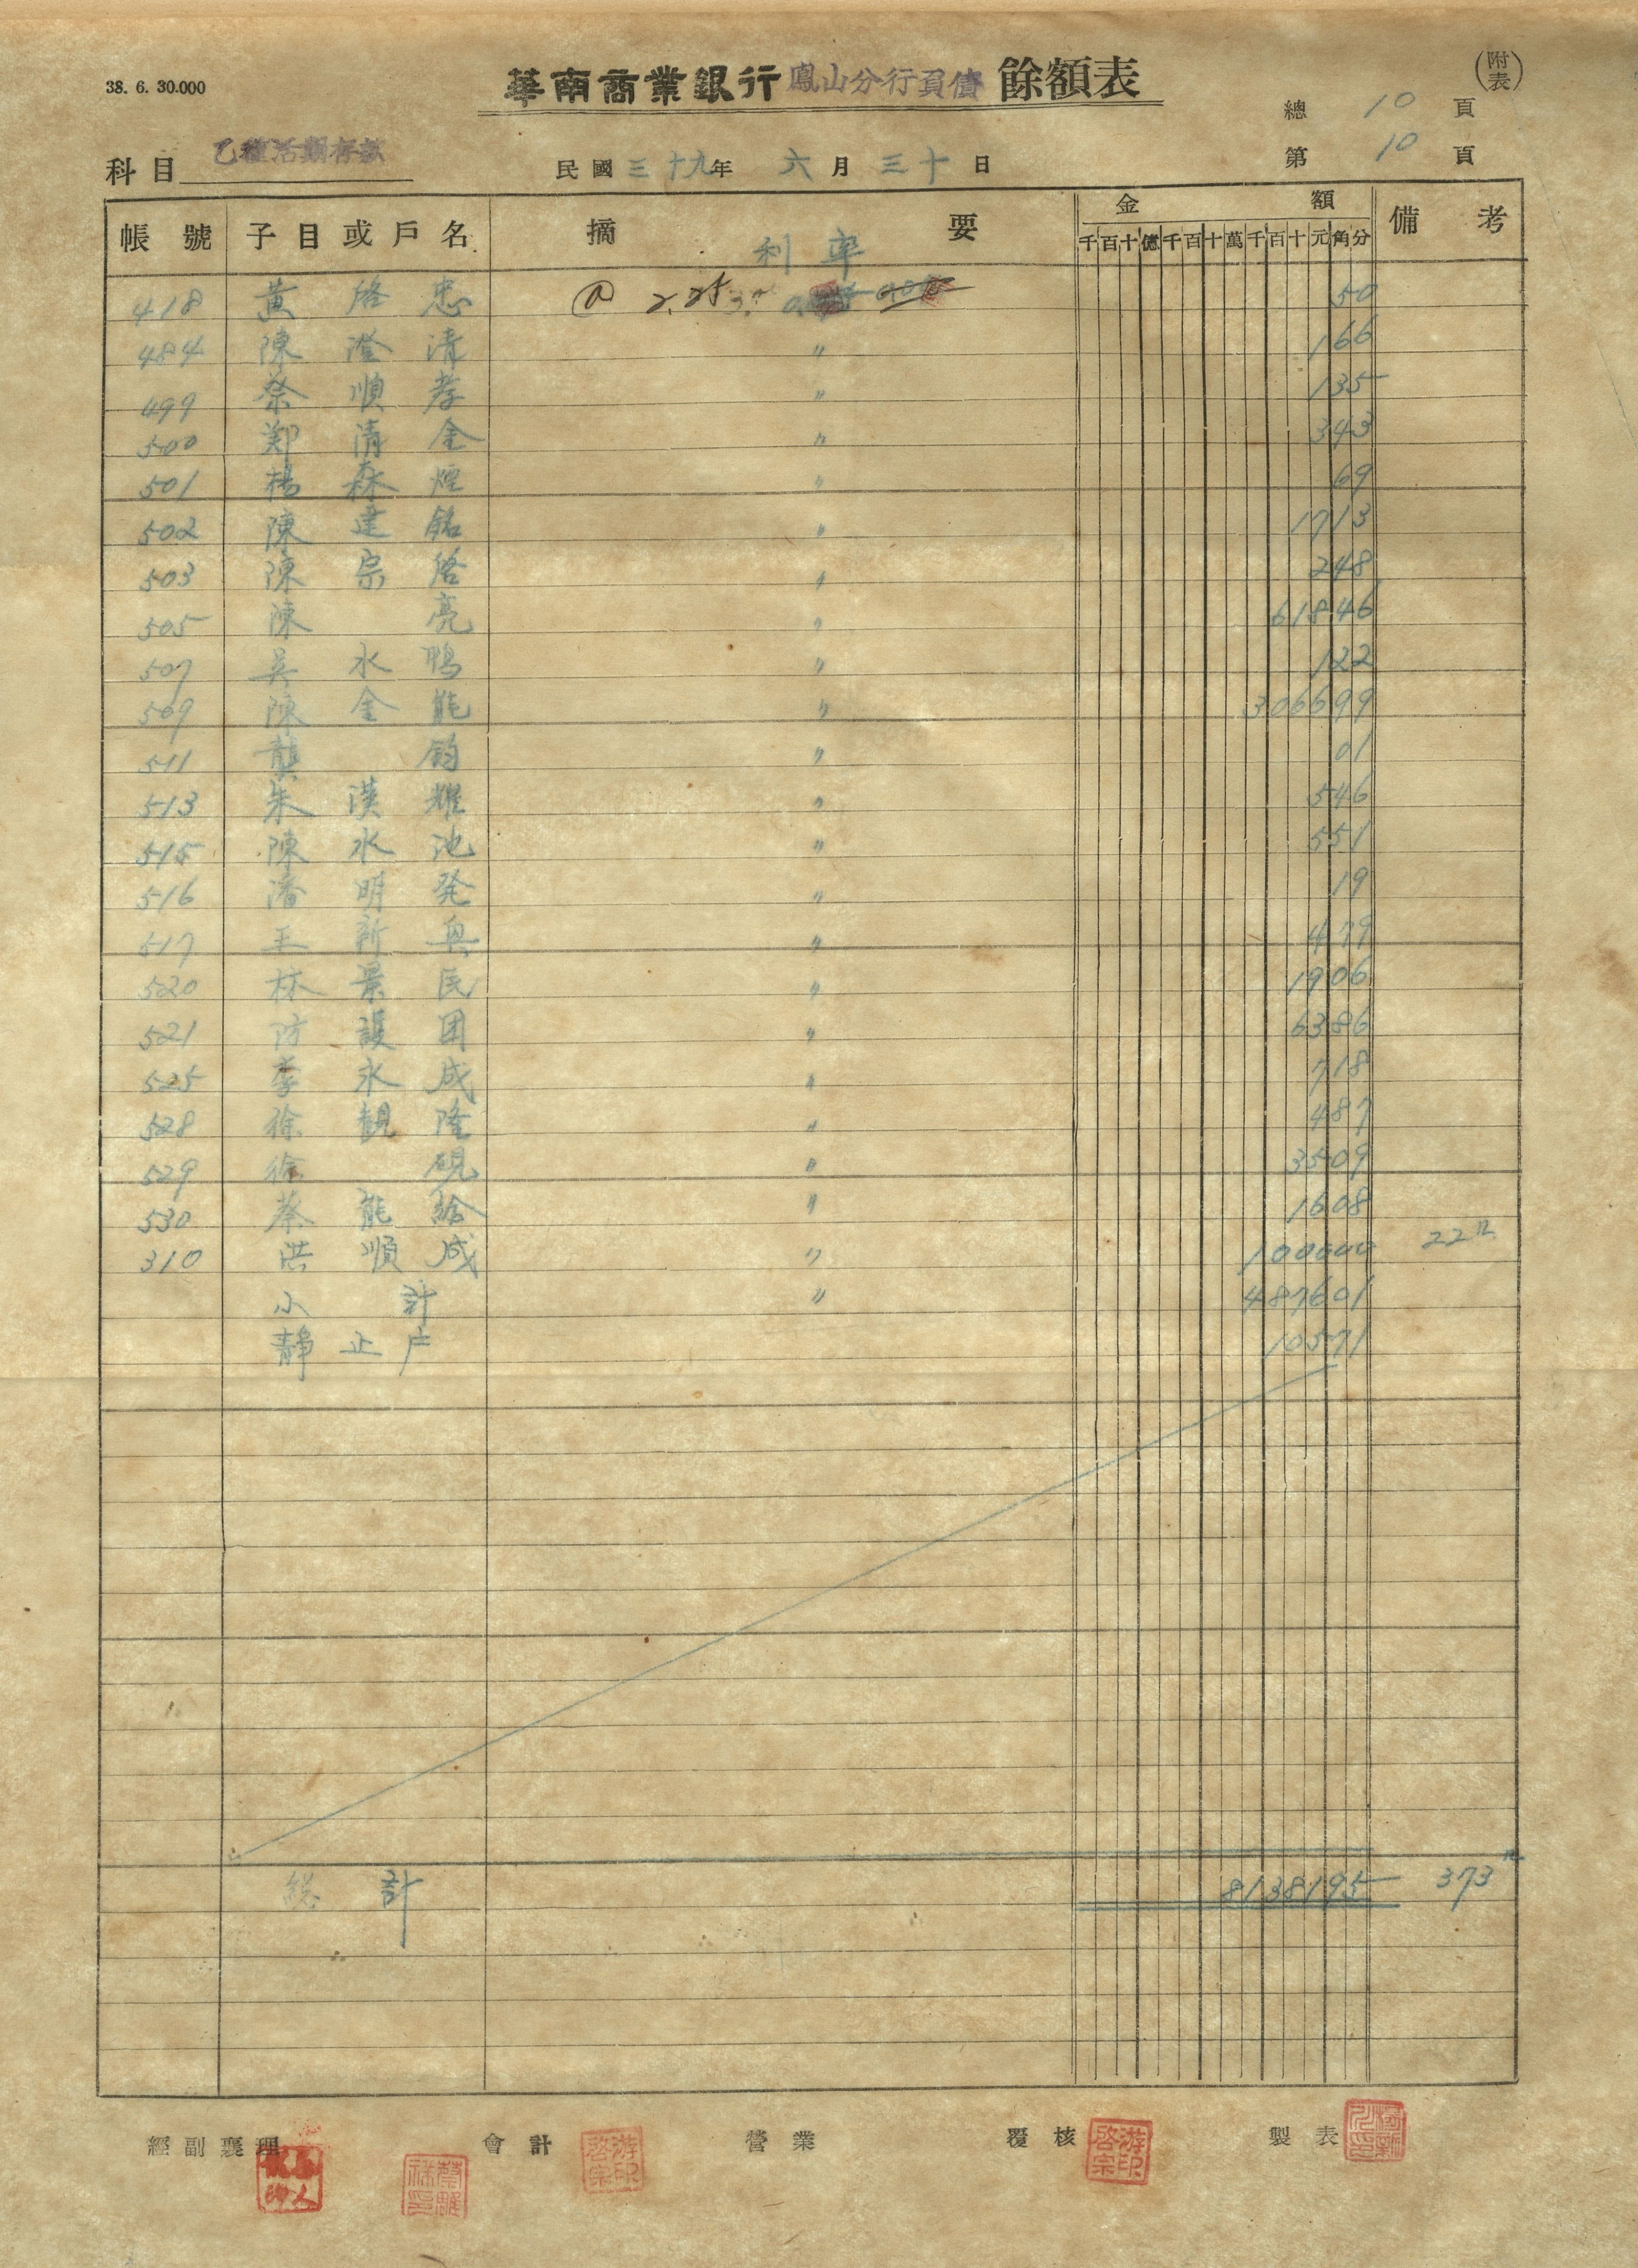 38. 6. 30.000
華南商業銀行 鳳山分行負債 餘額表
(附表)
總 10 頁
第 10 頁
科目 乙種活期存款
民國 三十九年 六月 三十日
帳號 子目或戶名 摘要 金額 備考
千百十億千百十萬千百十元角分
利率
418 黃 啓 忠 @ 2.25 50
484 陳 澄 清 〃 166
499 蔡 順 孝 〃 135
500 鄭 清 金 〃 343
501 楊 森 煙 〃 69
502 陳 建 銘 〃 1713
503 陳 宗 啓 〃 248
505 陳 亮 〃 61846
507 吳 水 鴨 〃 122
509 陳 金 能 〃 306699
511 龔 鈞 〃 01
513 朱 漢 耀 〃 546
515 陳 水 池 〃 551
516 潘 明 発 〃 19
517 王 新 興 〃 479
520 林 景 民 〃 1906
521 防 護 団 〃 6386
525 李 永 成 〃 718
528 徐 観 隆 〃 487
529 徐 硯 〃 3509
530 蔡 能 給 〃 1608
310 洪 順 成 〃 100000 22
小計 〃 487601
靜止戶 10571
總計 8138195 373
經副襄理 會計 營業 覆核 製表
游印啓宗
游印啓宗